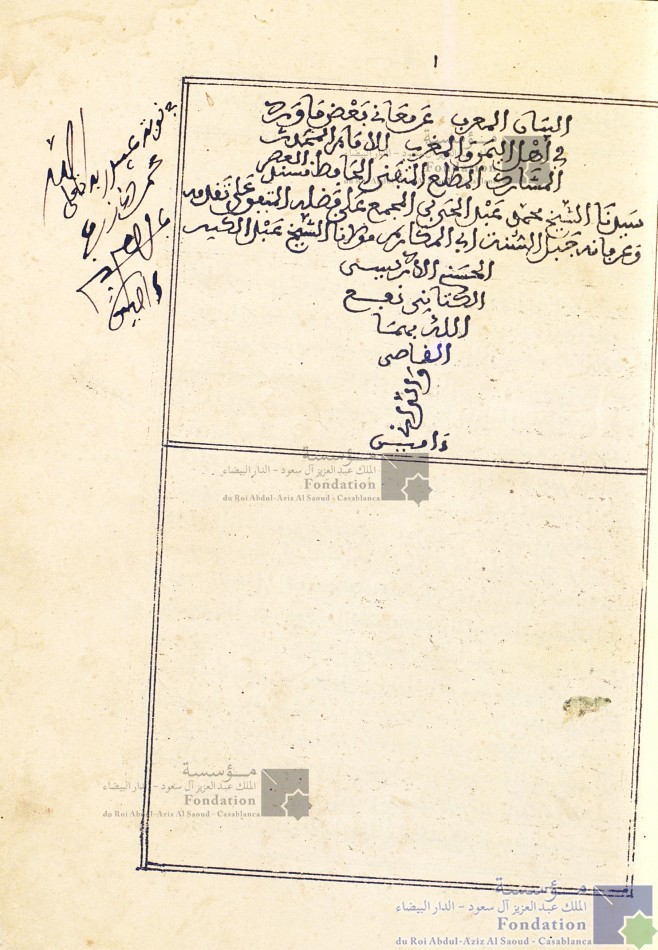 ١
البيان المعرب عن معاني بعض ما ورد
في أهل اليمن والمغرب للإمام المحدث
المشارك المطلع المتفنن الحافظ مسند العصر
سيدنا الشيخ محمد عبد الحي بن المجمع على فضله المتفق على تقدمه
وعرفانه جبل السنة أبي المكارم مولانا الشيخ عبد الكبير
الحسني الإدريسي
الكتاني نفع
الله بهما
القاصي
والداني
ءاميين
الله
محمد
مؤسسة
الملك عبد العزيز آل سعود – الدار البيضاء
Fondation
du Roi Abdul-Aziz Al Saoud - Casablanca
مؤسسة
الملك عبد العزيز آل سعود – الدار البيضاء
Fondation
du Roi Abdul-Aziz Al Saoud - Casablanca
مؤسسة
الملك عبد العزيز آل سعود – الدار البيضاء
Fondation
du Roi Abdul-Aziz Al Saoud - Casablanca